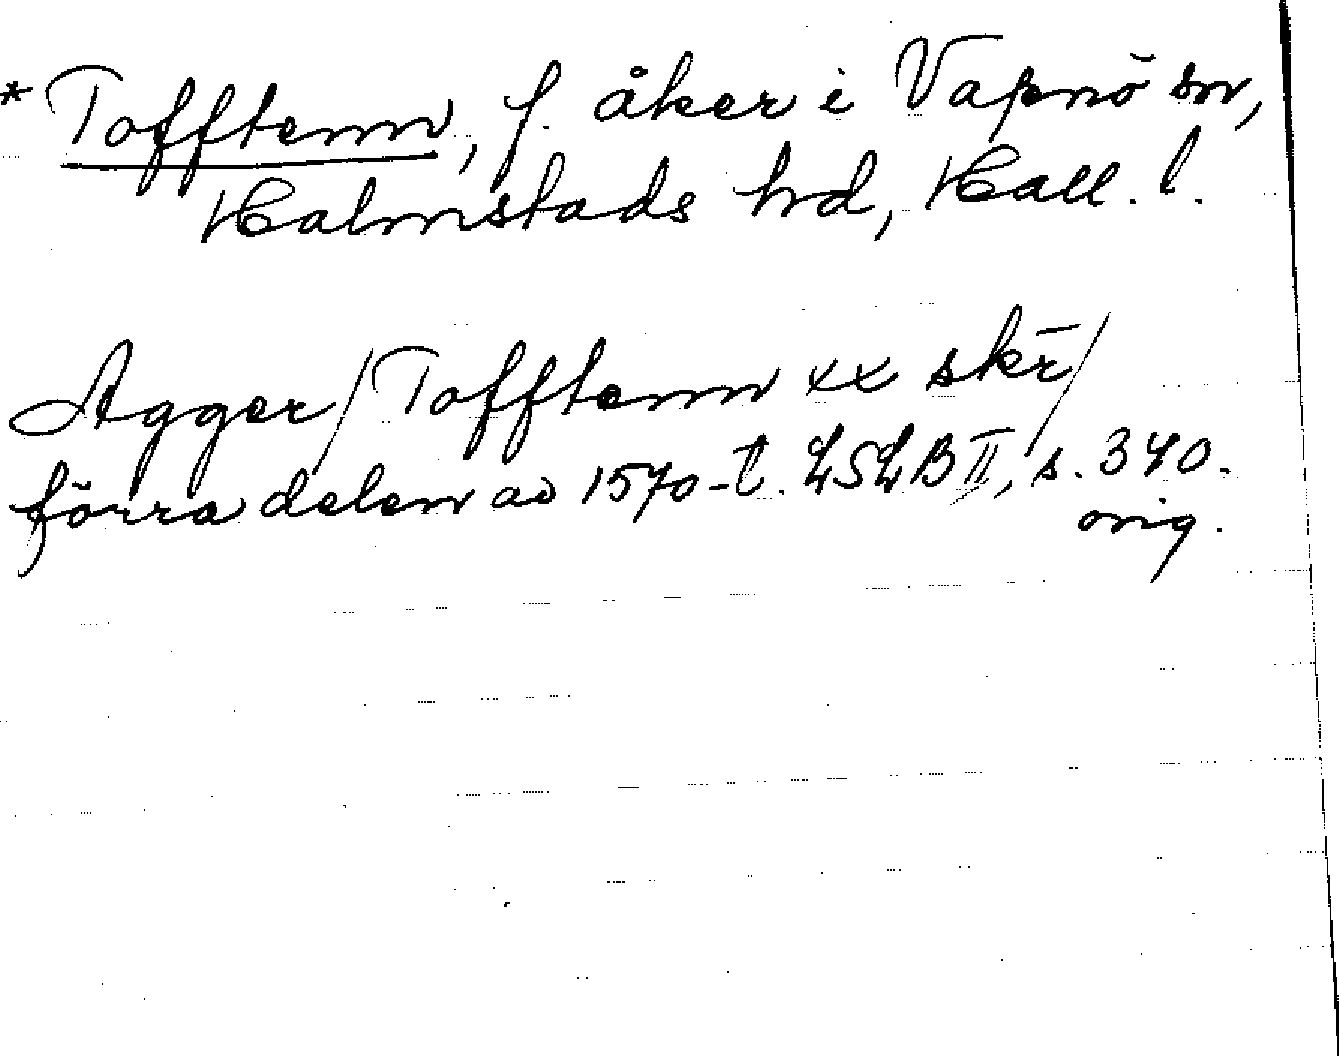 * Tofftenn, f. åker i Vapnö sn,
Halmstads hd, Hall. l.
Agger / Tofftenn xx skr̄ /
förra delen av 1570-t. LSLB II, s. 340.
orig.